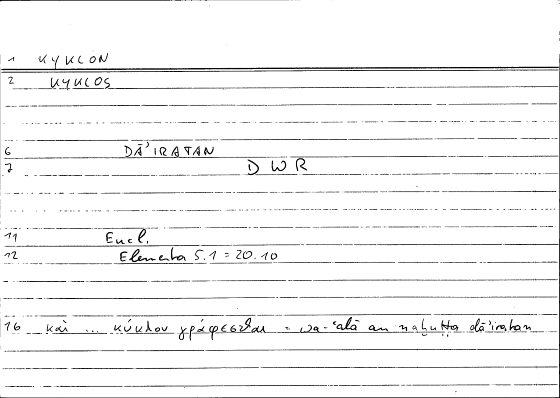 1 KYKLON
2 KYKLOS
6 DĀ'IRATAN
7 DWR
11 Eucl.
12 Elementa 5.1 = 20.10
16 καὶ ... κύκλον γράφεσθαι = wa-ʿalā an naḫuṭṭa dā'iratan